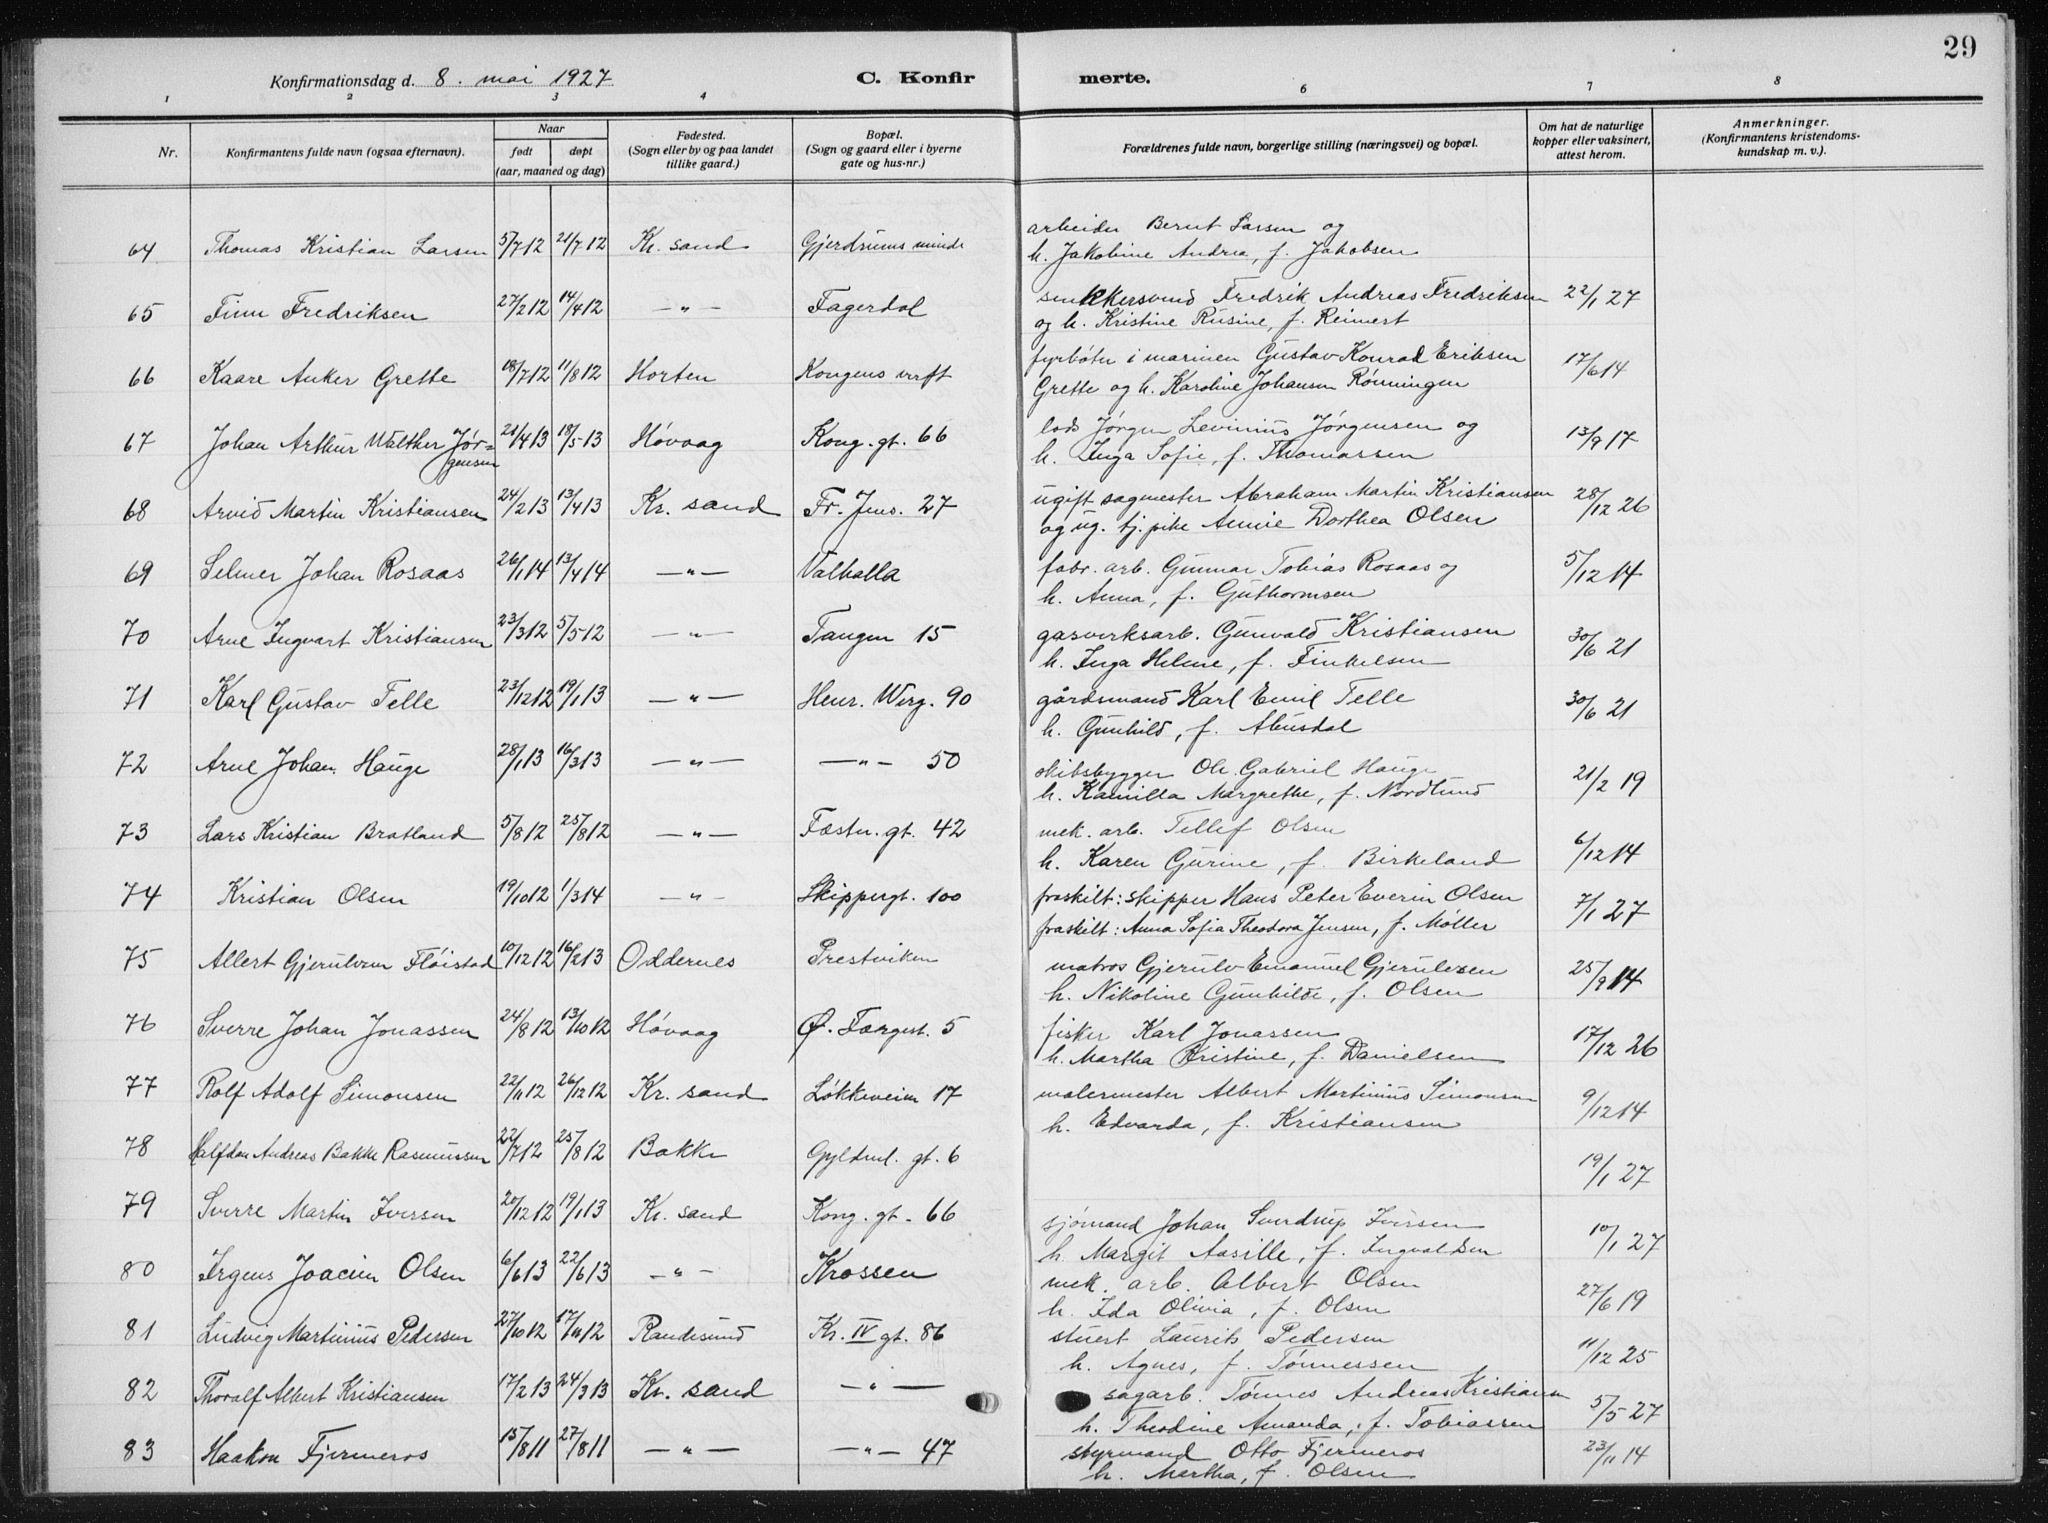 29
Konfirmationsdag d. 8. mai 1927 C. Konfirmerte.
1 2 3 4 6 7 8
Nr. Konfirmantens fulde navn (ogsaa efternavn). Naar født døpt (aar, maaned og dag) Fødested. (Sogn eller by og paa landet tillike gaard.) Bopæl. (Sogn og gaard eller i byerne gate og hus-nr.) Forældrenes fulde navn, borgerlige stilling (næringsvei) og bopæl. Om hat de naturlige kopper eller vaksinert, attest herom. Anmerkninger. (Konfirmantens kristendoms-kundskap m. v.).
64 Thomas Kristian Larsen 5/7 12 21/7 12 Kr. sand Gjerdrums minde arbeider Bernt Larsen og
h. Jakobine Andrea, f. Jakobsen
65 Finn Fredriksen 27/2 12 14/4 12 —"— Fagerdal Fredrik Andreas Fredriksen 22/1 27
og h. Kristine Rusine, f. Reinert
66 Kaare Anker Grette 18/7 12 11/8 12 Horten Kongens verft fyrbøter i marinen Gustav Konrad Eriksen 17/6 14
Grette og h. Karoline Johansen Rønningen
67 Johan Arthur Walther Jør- 21/4 13 18/5 13 Høvaag Kong. gt. 66 lods Jørgen Levinius Jørgensen og 13/9 17
gensen h. Inga Sofie, f. Thomassen
68 Arvid Martin Kristiansen 24/2 13 13/4 13 Kr. sand Fr. Jens. 27 ugift sagmester Abraham Martin Kristiansen 28/12 26
og ug. tj. pike Annie Dorthea Olsen
69 Selmer Johan Rosaas 26/1 14 13/4 14 —"— Valhalla fabr. arb. Gunnar Tobias Rosaas og 5/12 14
h. Anna, f. Guthormsen
70 Arne Ingvart Kristiansen 23/3 12 5/5 12 —"— Tangen 15 gasverksarb. Gunvald Kristiansen 30/6 21
h. Inga Helene, f. Finkelsen
71 Karl Gustav Telle 23/12 12 19/1 13 —"— Henr. Werg. 90 gårdsmand Karl Emil Telle 30/6 21
h. Gunhild, f. Abusdal
72 Arne Johan Hauge 28/1 13 16/3 13 —"— —"— 50 skibsbygger Ole Gabriel Hauge 21/2 19
h. Kamilla Margrethe, f. Nordlund
73 Lars Kristian Bratland 5/8 12 25/8 12 —"— Fæstn. gt. 42 mek. arb. Tellef Olsen 6/12 14
h. Karen Gurine, f. Birkeland
74 Kristian Olsen 19/10 12 1/3 14 —"— Skippergt. 100 fraskilt: skipper Hans Peter Everin Olsen 7/1 27
fraskilt: Anna Sofia Theodora Jensen, f. Møller
75 Allert Gjerulvsen Fløistad 10/12 12 16/2 13 Oddernes Prestviken matros Gjerulv Emanuel Gjerulvsen 25/9 14
h. Nikoline Gunhilde, f. Olsen
76 Sverre Johan Jonassen 24/8 12 13/10 12 Høvaag Ø. Færgest. 5 fisker Karl Jonassen 17/12 26
h. Martha Kristine, f. Danielsen
77 Rolf Adolf Simonsen 22/11 12 26/12 12 Kr. sand Løkkeveien 17 malermester Albert Martinius Simonsen 9/12 14
h. Edvarda, f. Kristiansen
78 Halfdan Andreas Bakke Rasmussen 22/7 12 25/8 12 Bakke Gyldenl. gt. 6 19/1 27
79 Sverre Martin Iversen 20/12 12 19/1 13 Kr. sand Kong. gt. 66 sjømand Johan Sverdrup Iversen 10/1 27
h. Margit Aasille, f. Ingvaldsen
80 Irgens Joacim Olsen 6/6 13 22/6 13 —"— Krossen mek. arb. Albert Olsen 27/6 19
h. Ida Olivia, f. Olsen
81 Ludvig Martinius Pedersen 27/10 12 17/11 12 Randesund Kr. IV gt. 86 stuert Laurits Pedersen 11/12 25
h. Agnes, f. Tønnessen
82 Thoralf Albert Kristiansen 17/2 13 24/3 13 Kr. sand —"— sagarb. Tønnes Andreas Kristiansen 5/5 27
h. Theodine Amanda, f. Tobiassen
83 Haakon Fjermeros 15/8 11 27/8 11 —"— —"— 47 styrmand Otto Fjermeros 23/11 14
h. Martha, f. Olsen